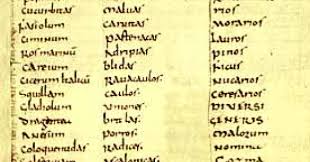 Cucurbitas maluas
Fasiolum Caruitas Morarios
Ciminum Pastenacas Lauros
Rosmarinū Adripias pinos
Careium blidas Ficus
Cicerum Italicū Rauacaulos Nucarios
Squillam caulos Ceresarios
Gladiolum Uniones DIVERSI
Dragantea britlas GENERIS
Anesum porros Malorum
Coloquentidas Radices